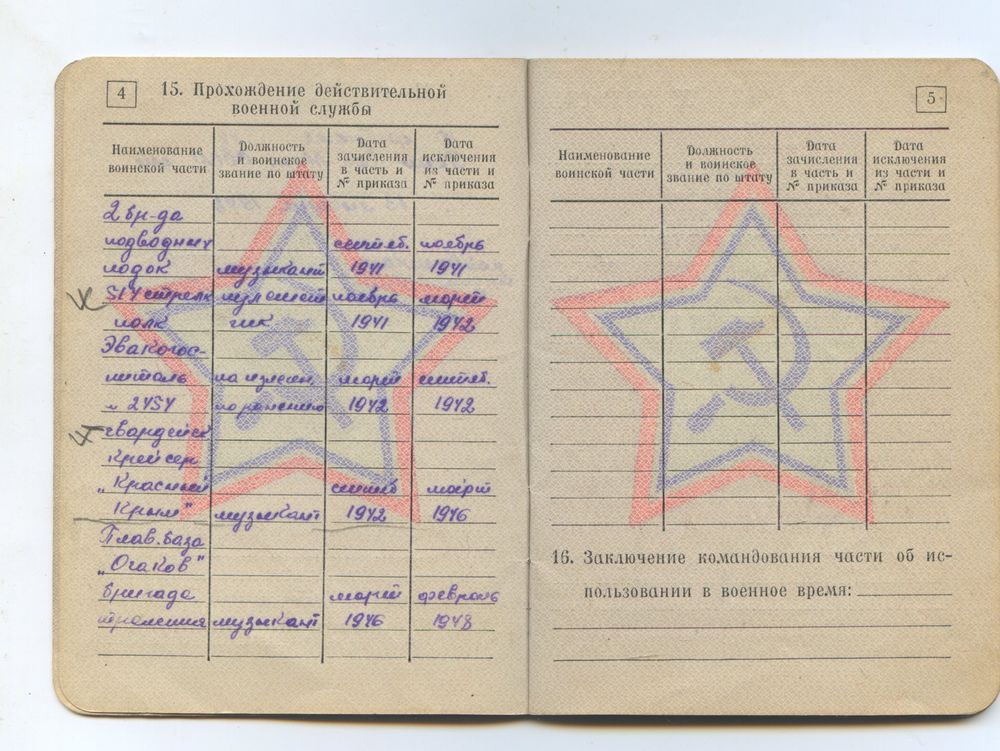 4
15. Прохождение действительной
военной службы
Наименование воинской части
Должность и воинское звание по штату
Дата зачисления в часть и № приказа
Дата исключения из части и № приказа
2 бр-да
подводных сентяб. ноябрь
лодок музыкант 1941 1941
514 стрелк пулемет ноябрь март
полк чик 1941 1942
Эвакогос-
питаль на излечен. март сентяб.
№ 2454 по ранению 1942 1942
гвардейск
крейсер
„Красный сентяб март
Крым" музыкант 1942 1946
Плав. база
„Очаков"
бригада март февраль
траления музыкант 1946 1948
5
Наименование воинской части
Должность и воинское звание по штату
Дата зачисления в часть и № приказа
Дата исключения из части и № приказа
16. Заключение командования части об ис-
пользовании в военное время: